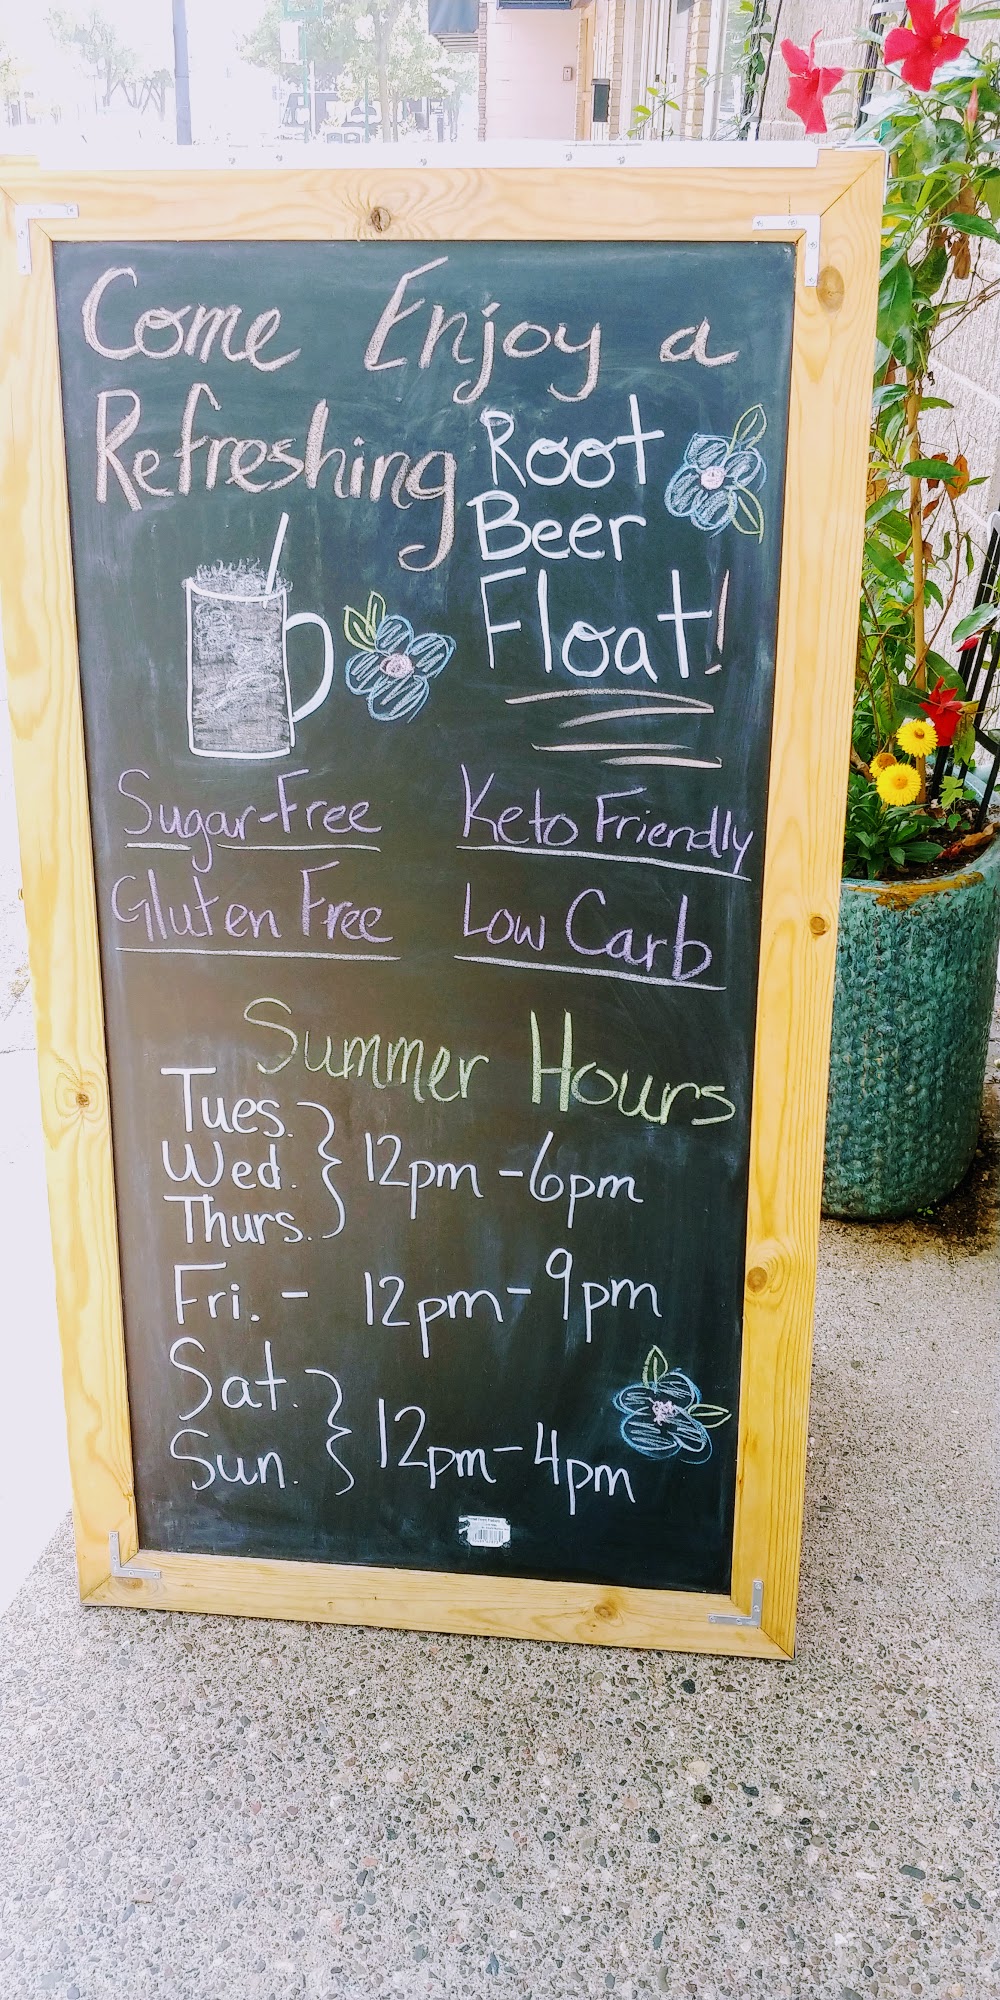 Come Enjoy a
Refreshing Root
Beer
Float!
Sugar-Free Keto Friendly
Gluten Free Low Carb
Summer Hours
Tues.
Wed. 12pm - 6pm
Thurs.
Fri. - 12pm - 9pm
Sat.
12pm - 4pm
Sun.